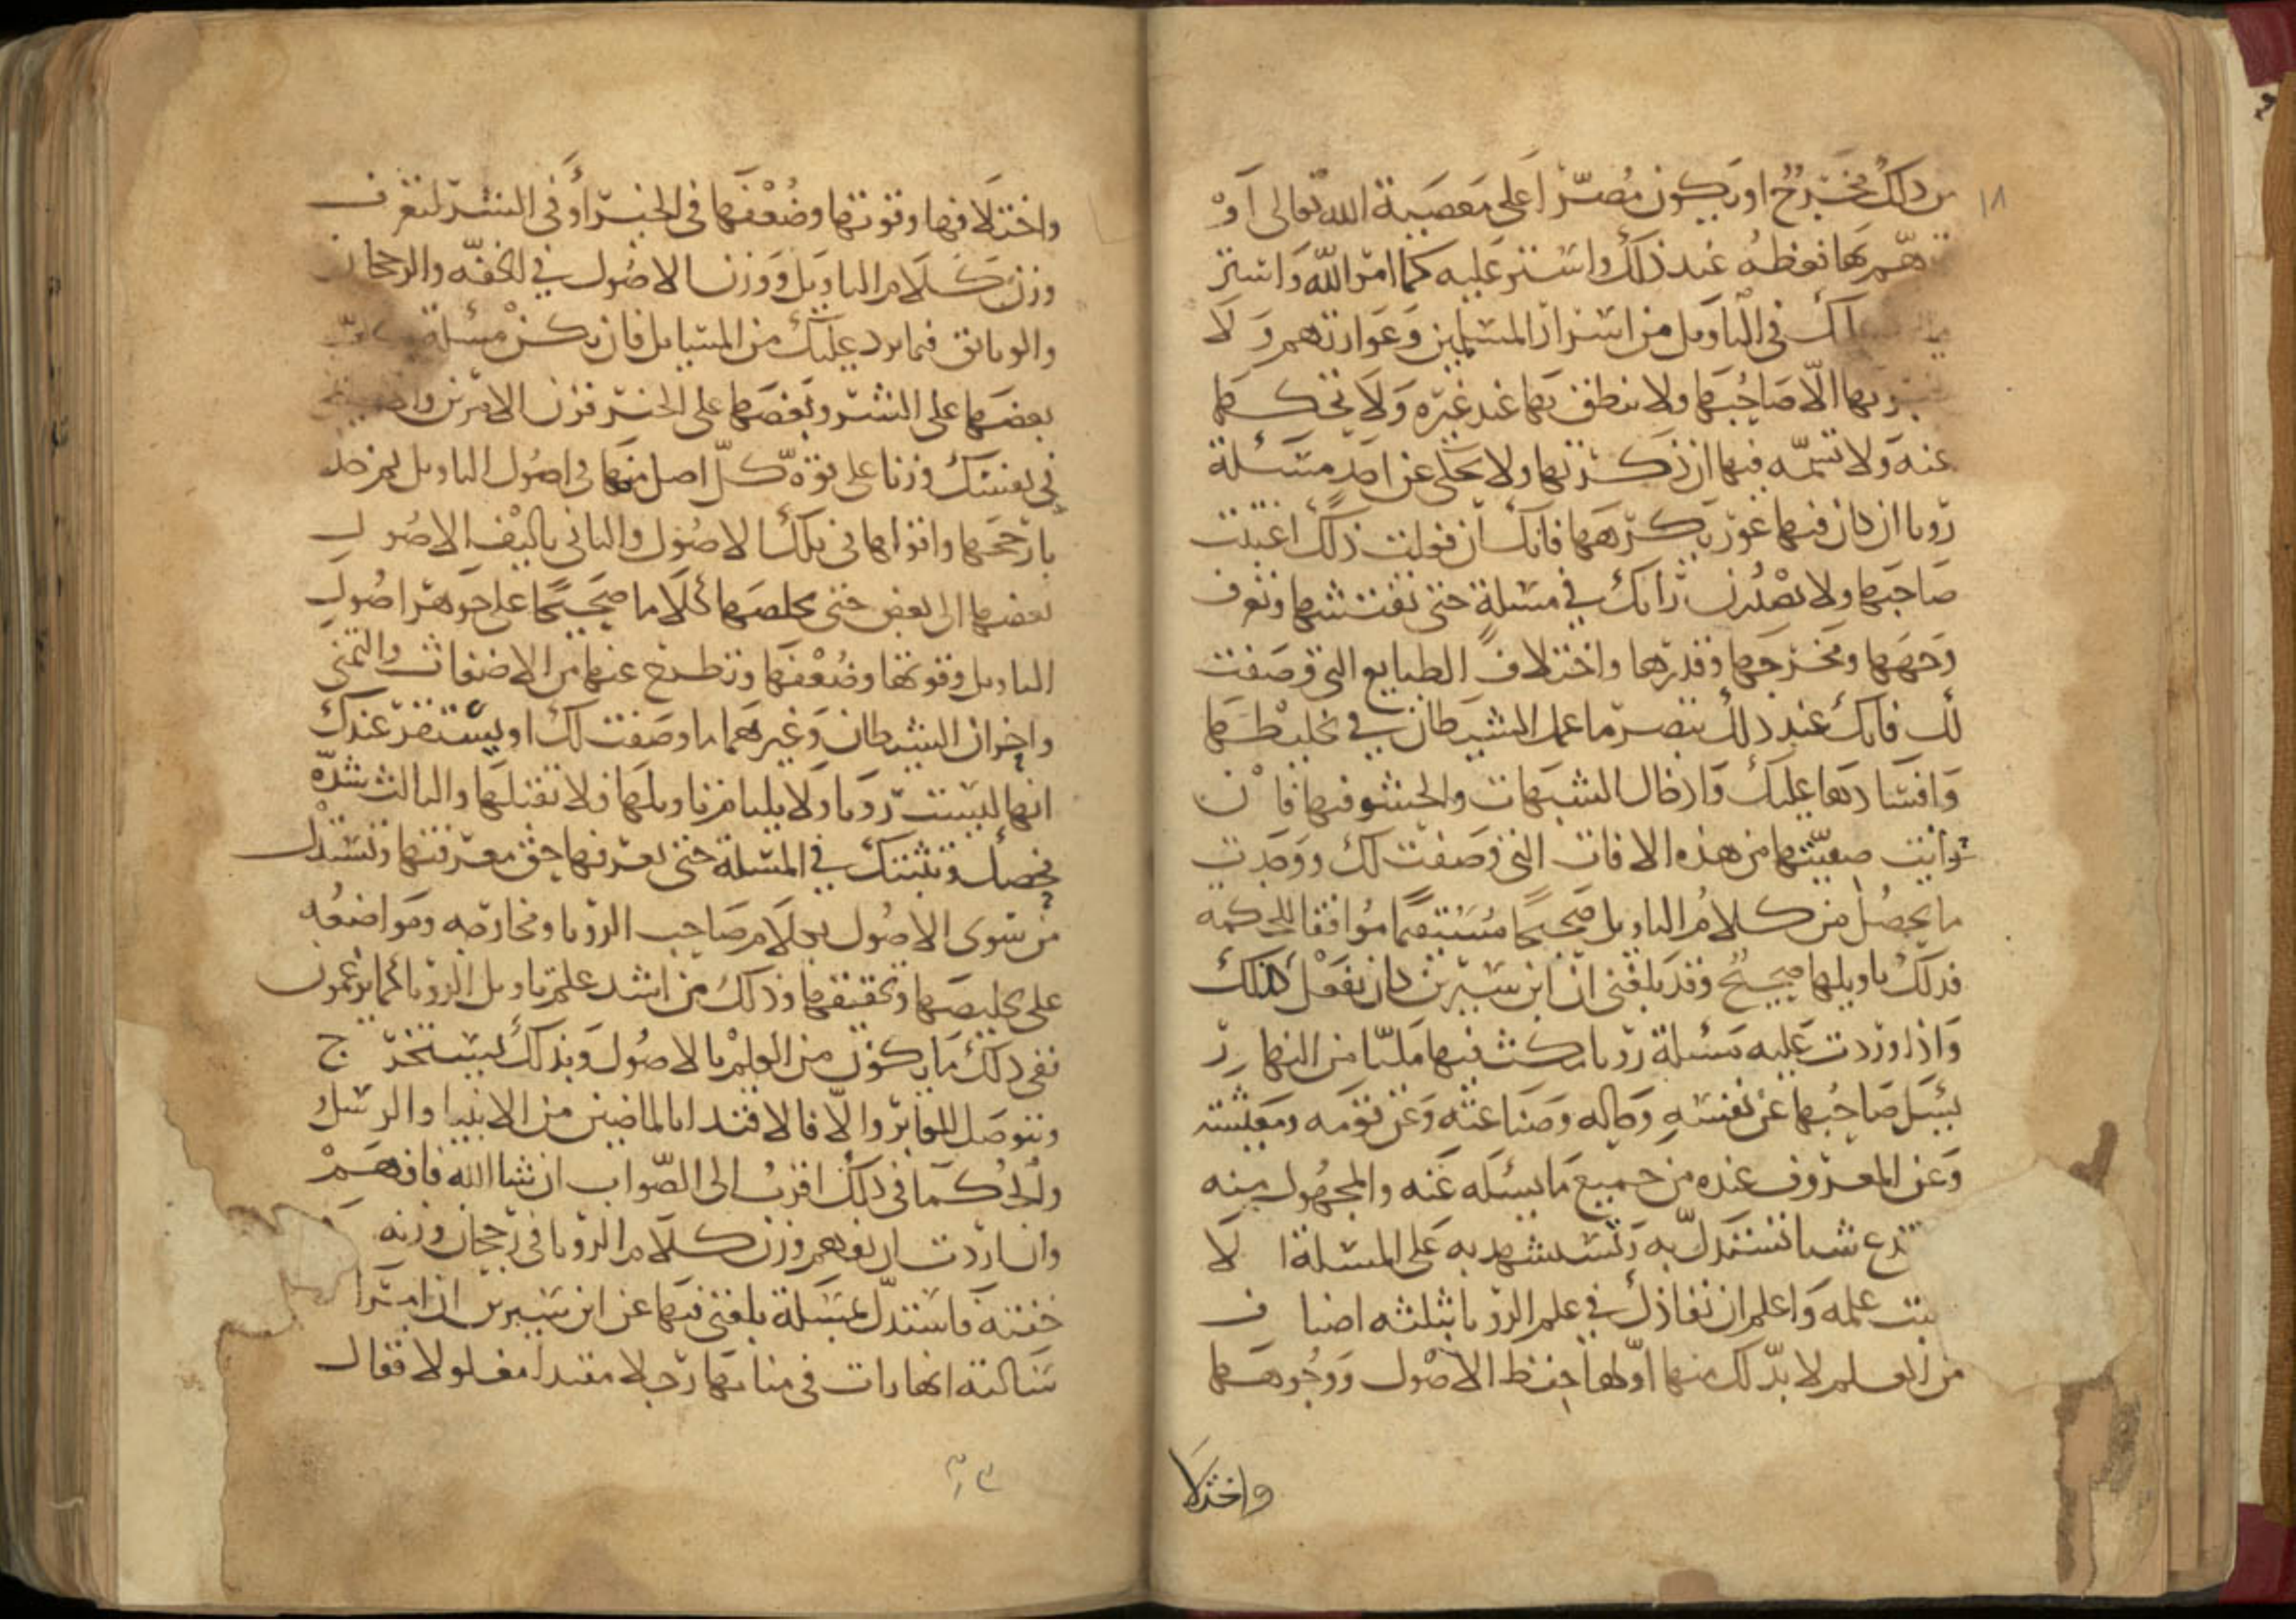 ١٨
من ذلك مخرج او يكون مصرا على معصية الله تعالى او
هم بها فعظه عند ذلك واستر عليه كما امر الله واستر
في التاويل من اسرار المسلمين وعوارتهم ولا
بها الا صاحبها ولا تنطق بها عند غيره ولا تحكها
عنه ولا تسمه فيها ان ذكرتها ولا تحكى عن احد مسئلة
رويا ان كان فيها عورة يكرهها فانك ان فعلت ذلك اغتبت
صاحبها ولا تصدرن رايك في مسئلة حتى تفتشها وتعرف
وجهها ومخرجها وقدرها واختلاف الطبايع التي وصفت
لك فانك عند ذلك تبصر ما عمل الشيطان في تخليطها
وافسادها عليك وادخال الشبهات والحشو فيها فان
انت صفيتها من هذه الافات التي وصفت لك ووجدت
ما يحصل من كلام التاويل صحيحا مستقيما موافقا للحكمه
فذلك تاويلها صحيح وقد بلغني ان ابن سيرين كان يفعل كذلك
واذا وردت عليه مسئلة رويا مكث فيها مليا من النهار
يسئل صاحبها عن نفسه وحاله وصناعته وعن قومه ومعيشته
وعن المعروف عنده من جميع ما يسئله عنه والمجهول منه
تدع شيا تستدل به وتستشهد به على المسئلة الا
علمه واعلم ان نفاذك في علم الرويا بثلثه اصناف
من العلم لا بد لك منها اولها حفظ الاصول ووجوهها
واختلا
واختلافها وقوتها وضعفها في الخير او في الشر لتعرف
وزن كلام التاويل ووزن الاصول في الخفه والرجحان
والوثائق فيما يرد عليك من المسايل فان تكن مسئلة
بعضها على الشر وبعضها على الخير فزن الامرين
في نفسك وزنا على قوة كل اصل منها في اصول التاويل ثم خذ
بارجحها واقواها في تلك الاصول والثاني تاليف الاصول
بعضها الى بعض حتى تخلصها كلاما صحيحا على جوهر اصول
التاويل وقوتها وضعفها وتطرح عنها من الاضغاث والتمني
واحزان الشيطان وغيرهما مما وصفت لك او يستقر عندك
انها ليست رويا ولا يلتام تاويلها فلا تقبلها والثالث شدة
فحصك وتثبتك في المسئلة حتى تعرفها حق معرفتها وتستدل
من سوى الاصول بكلام صاحب الرويا ومخارجه ومواضعه
على تخليصها وتحقيقها وذلك من اشد علم تاويل الرويا كما يزعمون
نفي ذلك ما يكون من العلم بالاصول وبذلك يستخرج
ويتوصل للعابر والا فالاقتدا بالماضين من الانبيا والرسل
والحكما في ذلك اقرب الى الصواب ان شا الله فافهم
وان اردت ان تفهم وزن كلام الرويا في رجحان وزنه
خفته فاستدل بمسئلة بلغني فيها عن ابن سيرين ان امرا
سالته انها رات في منامها رجلا مقيدا مغلولا فقال